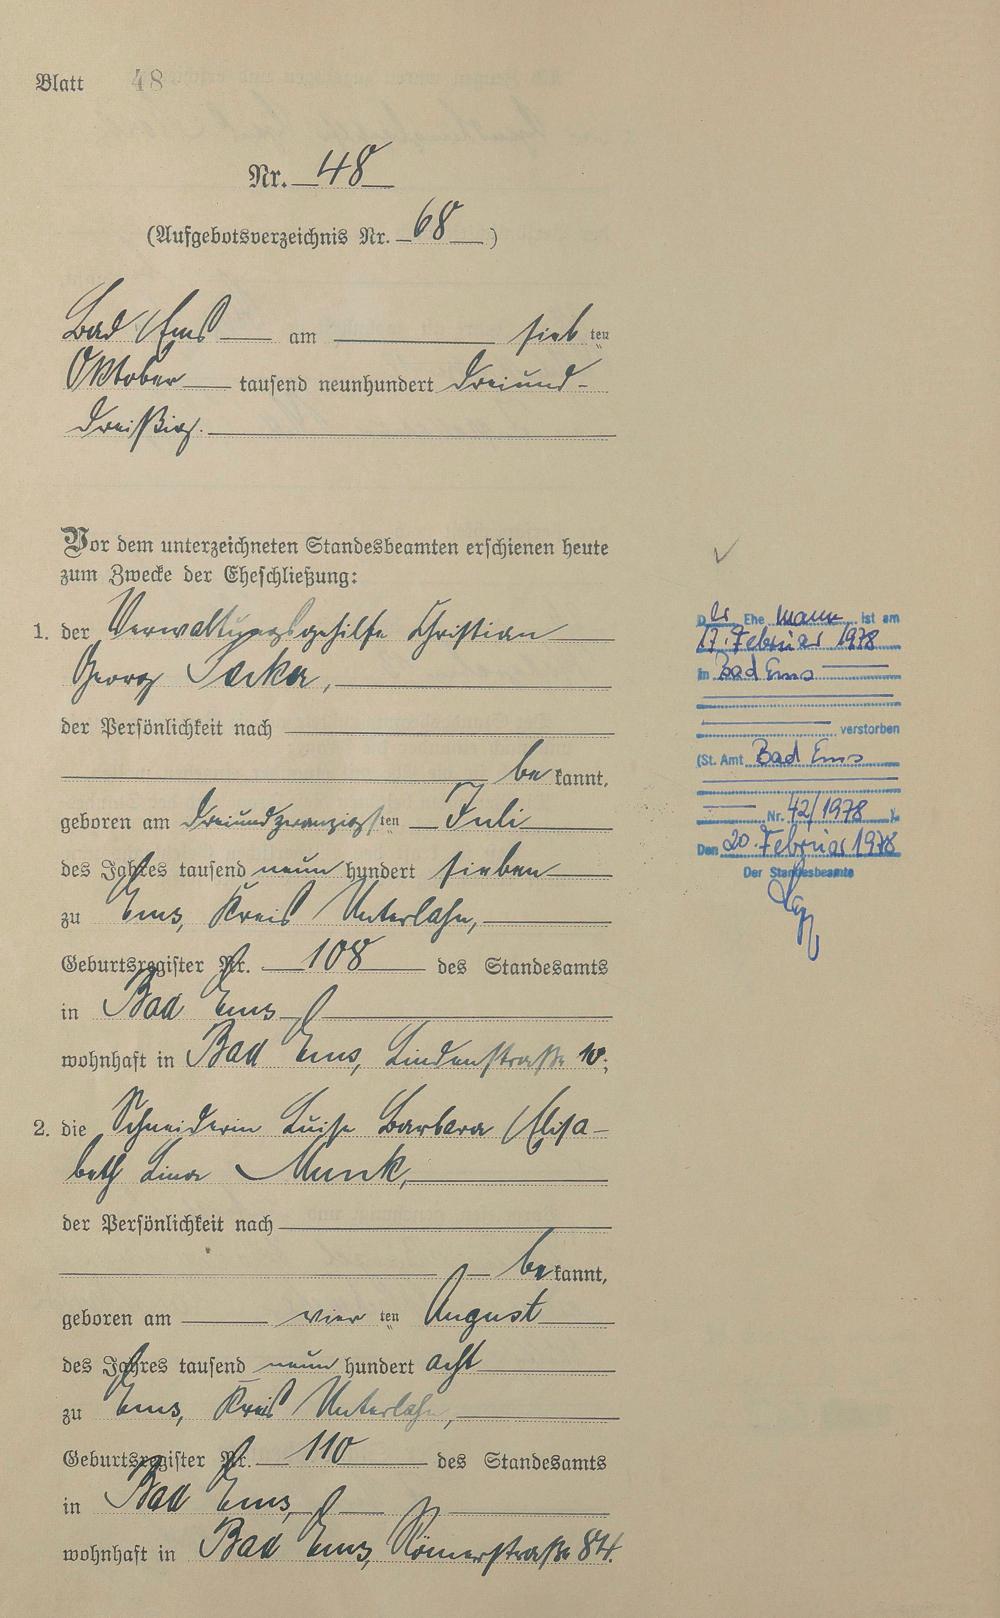 Blatt 48
Nr. 48
(Aufgebotsverzeichnis Nr. 68)
Bad Ems am siebten
Oktober tausend neunhundert dreiund-
dreißig.
Vor dem unterzeichneten Standesbeamten erschienen heute
zum Zwecke der Eheschließung:
1. der Verwaltungsgehilfe Christian
Georg Sacker,
der Persönlichkeit nach
bekannt,
geboren am dreiundzwanzigsten Juli
des Jahres tausend neun hundert sieben
zu Ems, Kreis Unterlahn,
Geburtsregister Nr. 108 des Standesamts
in Bad Ems
wohnhaft in Bad Ems, Lindenstraße 10;
2. die Schneiderin Luise Barbara Elisa-
beth Lina Munk,
der Persönlichkeit nach
bekannt,
geboren am vierten August
des Jahres tausend neun hundert acht
zu Ems, Kreis Unterlahn,
Geburtsregister Nr. 110 des Standesamts
in Bad Ems,
wohnhaft in Bad Ems, Römerstraße 84.
Der Ehemann ist am
17. Februar 1978
in Bad Ems
verstorben
(St. Amt Bad Ems
Nr. 42/1978 ).
Den 20. Februar 1978
Der Standesbeamte